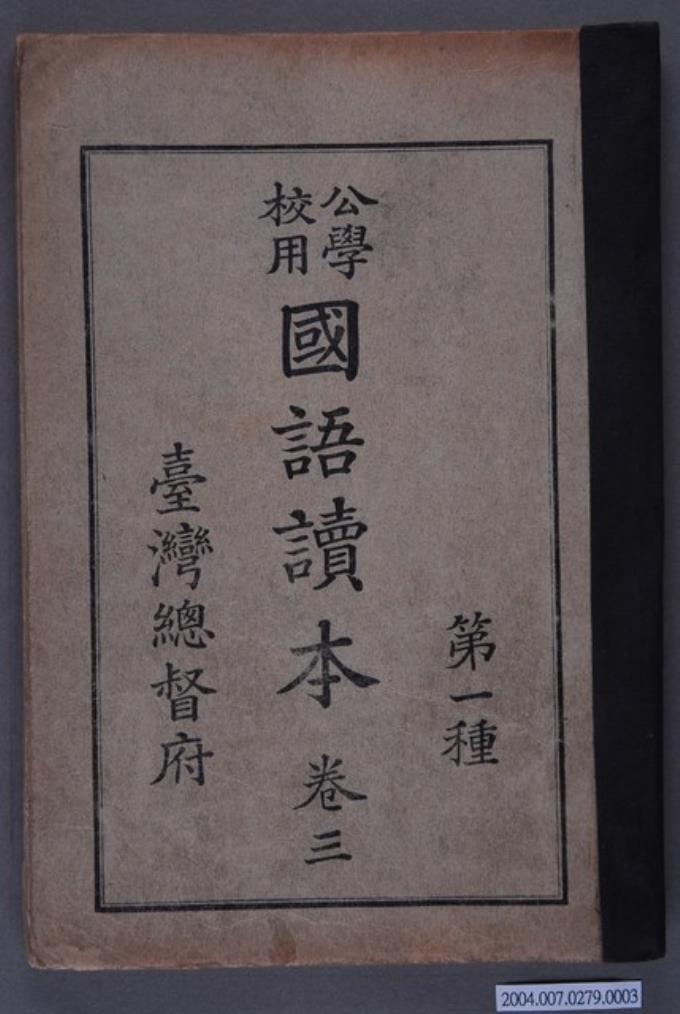 第一種
公學
校用
國語讀本 卷三
臺灣總督府
2004.007.0279.0003